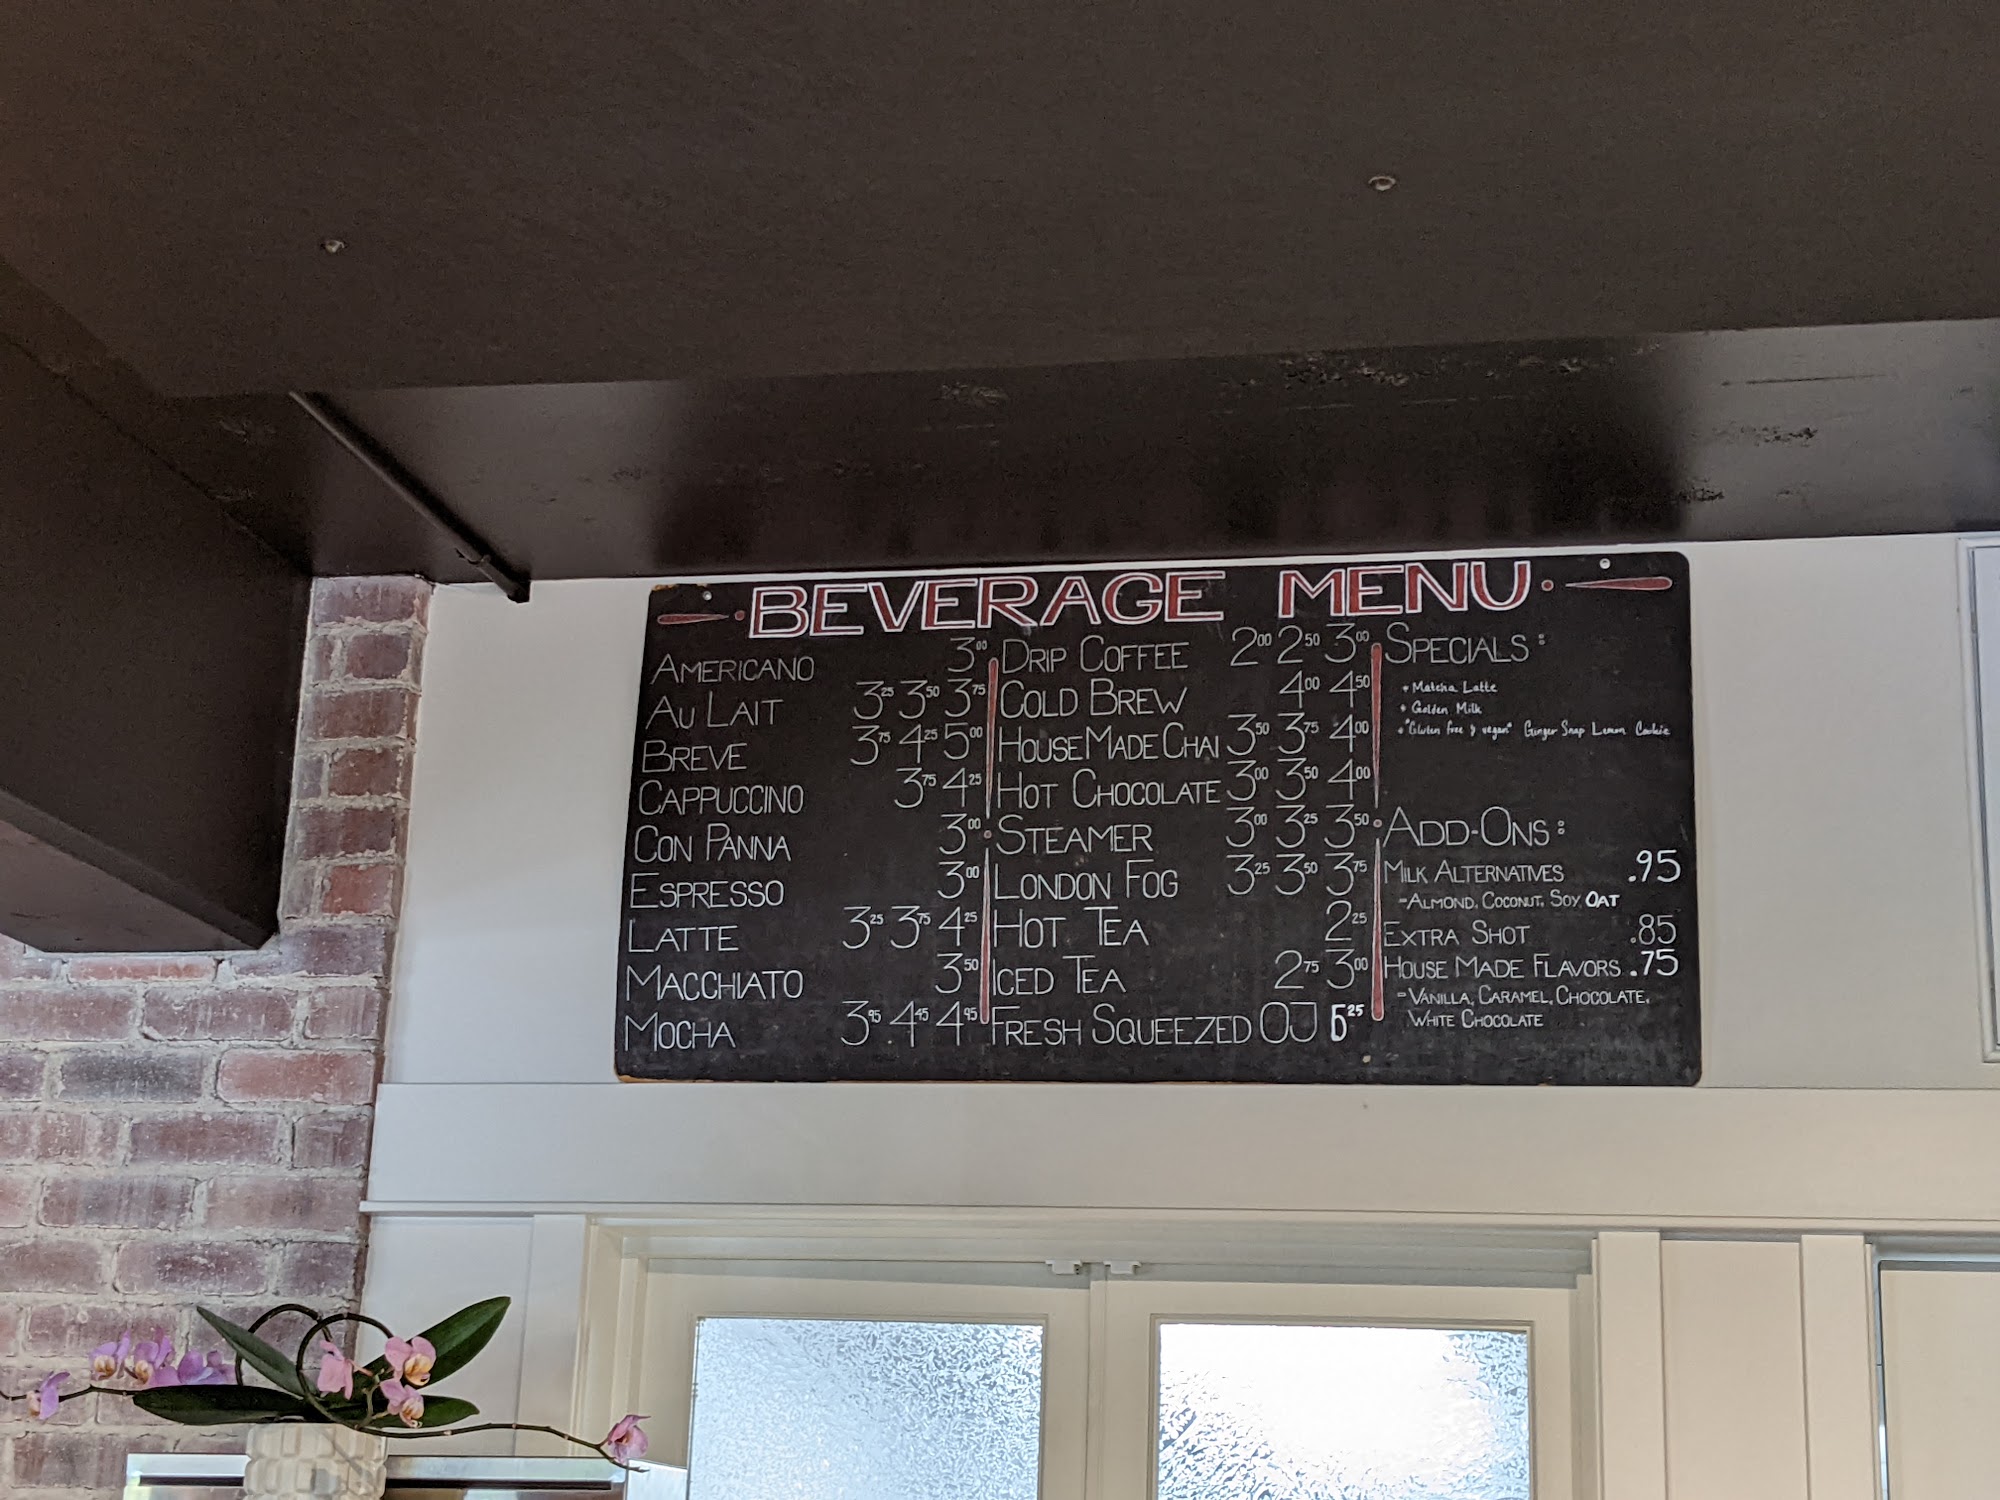 BEVERAGE MENU
AMERICANO 3.00
AU LAIT 3.25 3.50 3.75
BREVE 3.75 4.25 5.00
CAPPUCCINO 3.75 4.25
CON PANNA 3.00
ESPRESSO 3.00
LATTE 3.25 3.75 4.25
MACCHIATO 3.50
MOCHA 3.95 4.45 4.95
DRIP COFFEE 2.00 2.50 3.00
COLD BREW 4.00 4.50
HOUSE MADE CHAI 3.50 3.75 4.00
HOT CHOCOLATE 3.00 3.50 4.00
STEAMER 3.00 3.25 3.50
LONDON FOG 3.25 3.50 3.75
HOT TEA 2.25
ICED TEA 2.75 3.00
FRESH SQUEEZED OJ 5.25
SPECIALS:
+ Matcha Latte
+ Golden Milk
+ "Gluten free & vegan" Ginger Snap Lemon Cookie
ADD-ONS:
MILK ALTERNATIVES .95
-ALMOND, COCONUT, SOY, OAT
EXTRA SHOT .85
HOUSE MADE FLAVORS .75
-VANILLA, CARAMEL, CHOCOLATE,
WHITE CHOCOLATE